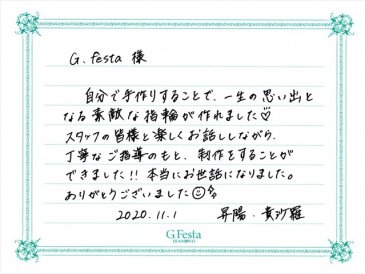 G.festa 様
自分で手作りすることで、一生の思い出と
なる素敵な指輪が作れました♡
スタッフの皆様と楽しくお話ししながら、
丁寧なご指導のもと、制作をすることが
できました!! 本当にお世話になりました。
ありがとうございました☺
2020.11.1 昇陽・貴沙羅
G.Festa
DIAMOND